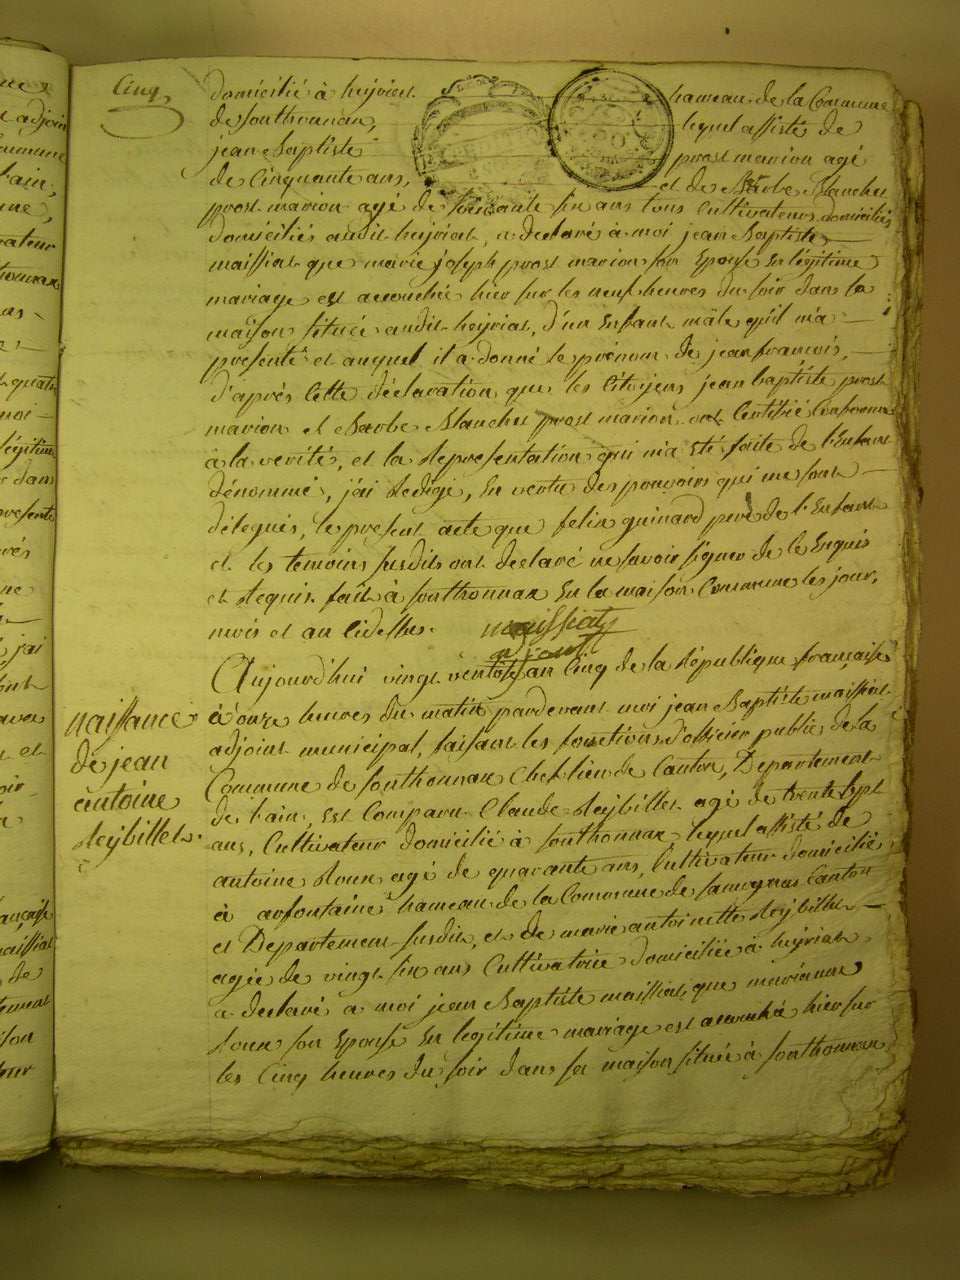 Cinq
domicilié à heyriat hameau de la Commune
de sonthonnax, lequel assisté de
jean Baptiste prost marion agé
de Cinquante ans, et de Barbe Blanchet
prost marion agé de soixante six ans tous Cultivateurs domiciliés
domiciliés audit heyriat, a declaré à moi jean Baptiste
maissiat que marie joseph prost marion son Epouse En légitime
mariage est accouchée hier sur les neuf heures du soir dans la
maison située audit heyriat, d'un Enfant mâle qu'il m'a
presenté et auquel il a donné le prénom de jean françois,
d'après Cette déclaration que les Citoyens jean baptiste prost
marion et Barbe Blanchet prost marion ont Certifié Conforme
à la verité, et la Representation qui m'a Eté faite de l'Enfant
dénommé, j'ai Redigé, En vertu des pouvoirs qui me sont
délegués, le present acte que felix guinard pere de l'Enfant
et les temoins susdits ont declaré ne savoir signer de ce Enquis
et Requis. fait à sonthonnax En la maison Commune les jour,
mois et an Cidessus. maissiat
adjoint
Aujourd'hui vingt ventose an Cinq de la République française
à onze heures du matin pardevant moi jean Baptiste maissiat
adjoint municipal, faisant les fonctions d'officier public de la
Commune de sonthonnax Chef lieu de Canton, Departement
de l'ain, Est Comparu Claude Reybillet agé de trente sept
ans, Cultivateur domicilié à sonthonnax lequel assisté de
antoine Roux agé de quarante ans, Cultivateur domicilié
à arfontaine hameau de la Commune de Canton
et Departement susdit, et de marie antoinette Reybillet
agée de vingt six ans Cultivatrice domiciliée à heyriat
a declaré a moi jean Baptiste maissiat, que marianne
Roux son Epouse En legitime mariage est accouchée hier sur
les Cinq heures du soir dans sa maison située à sonthonnax
naissance
de jean
antoine
Reybillet.